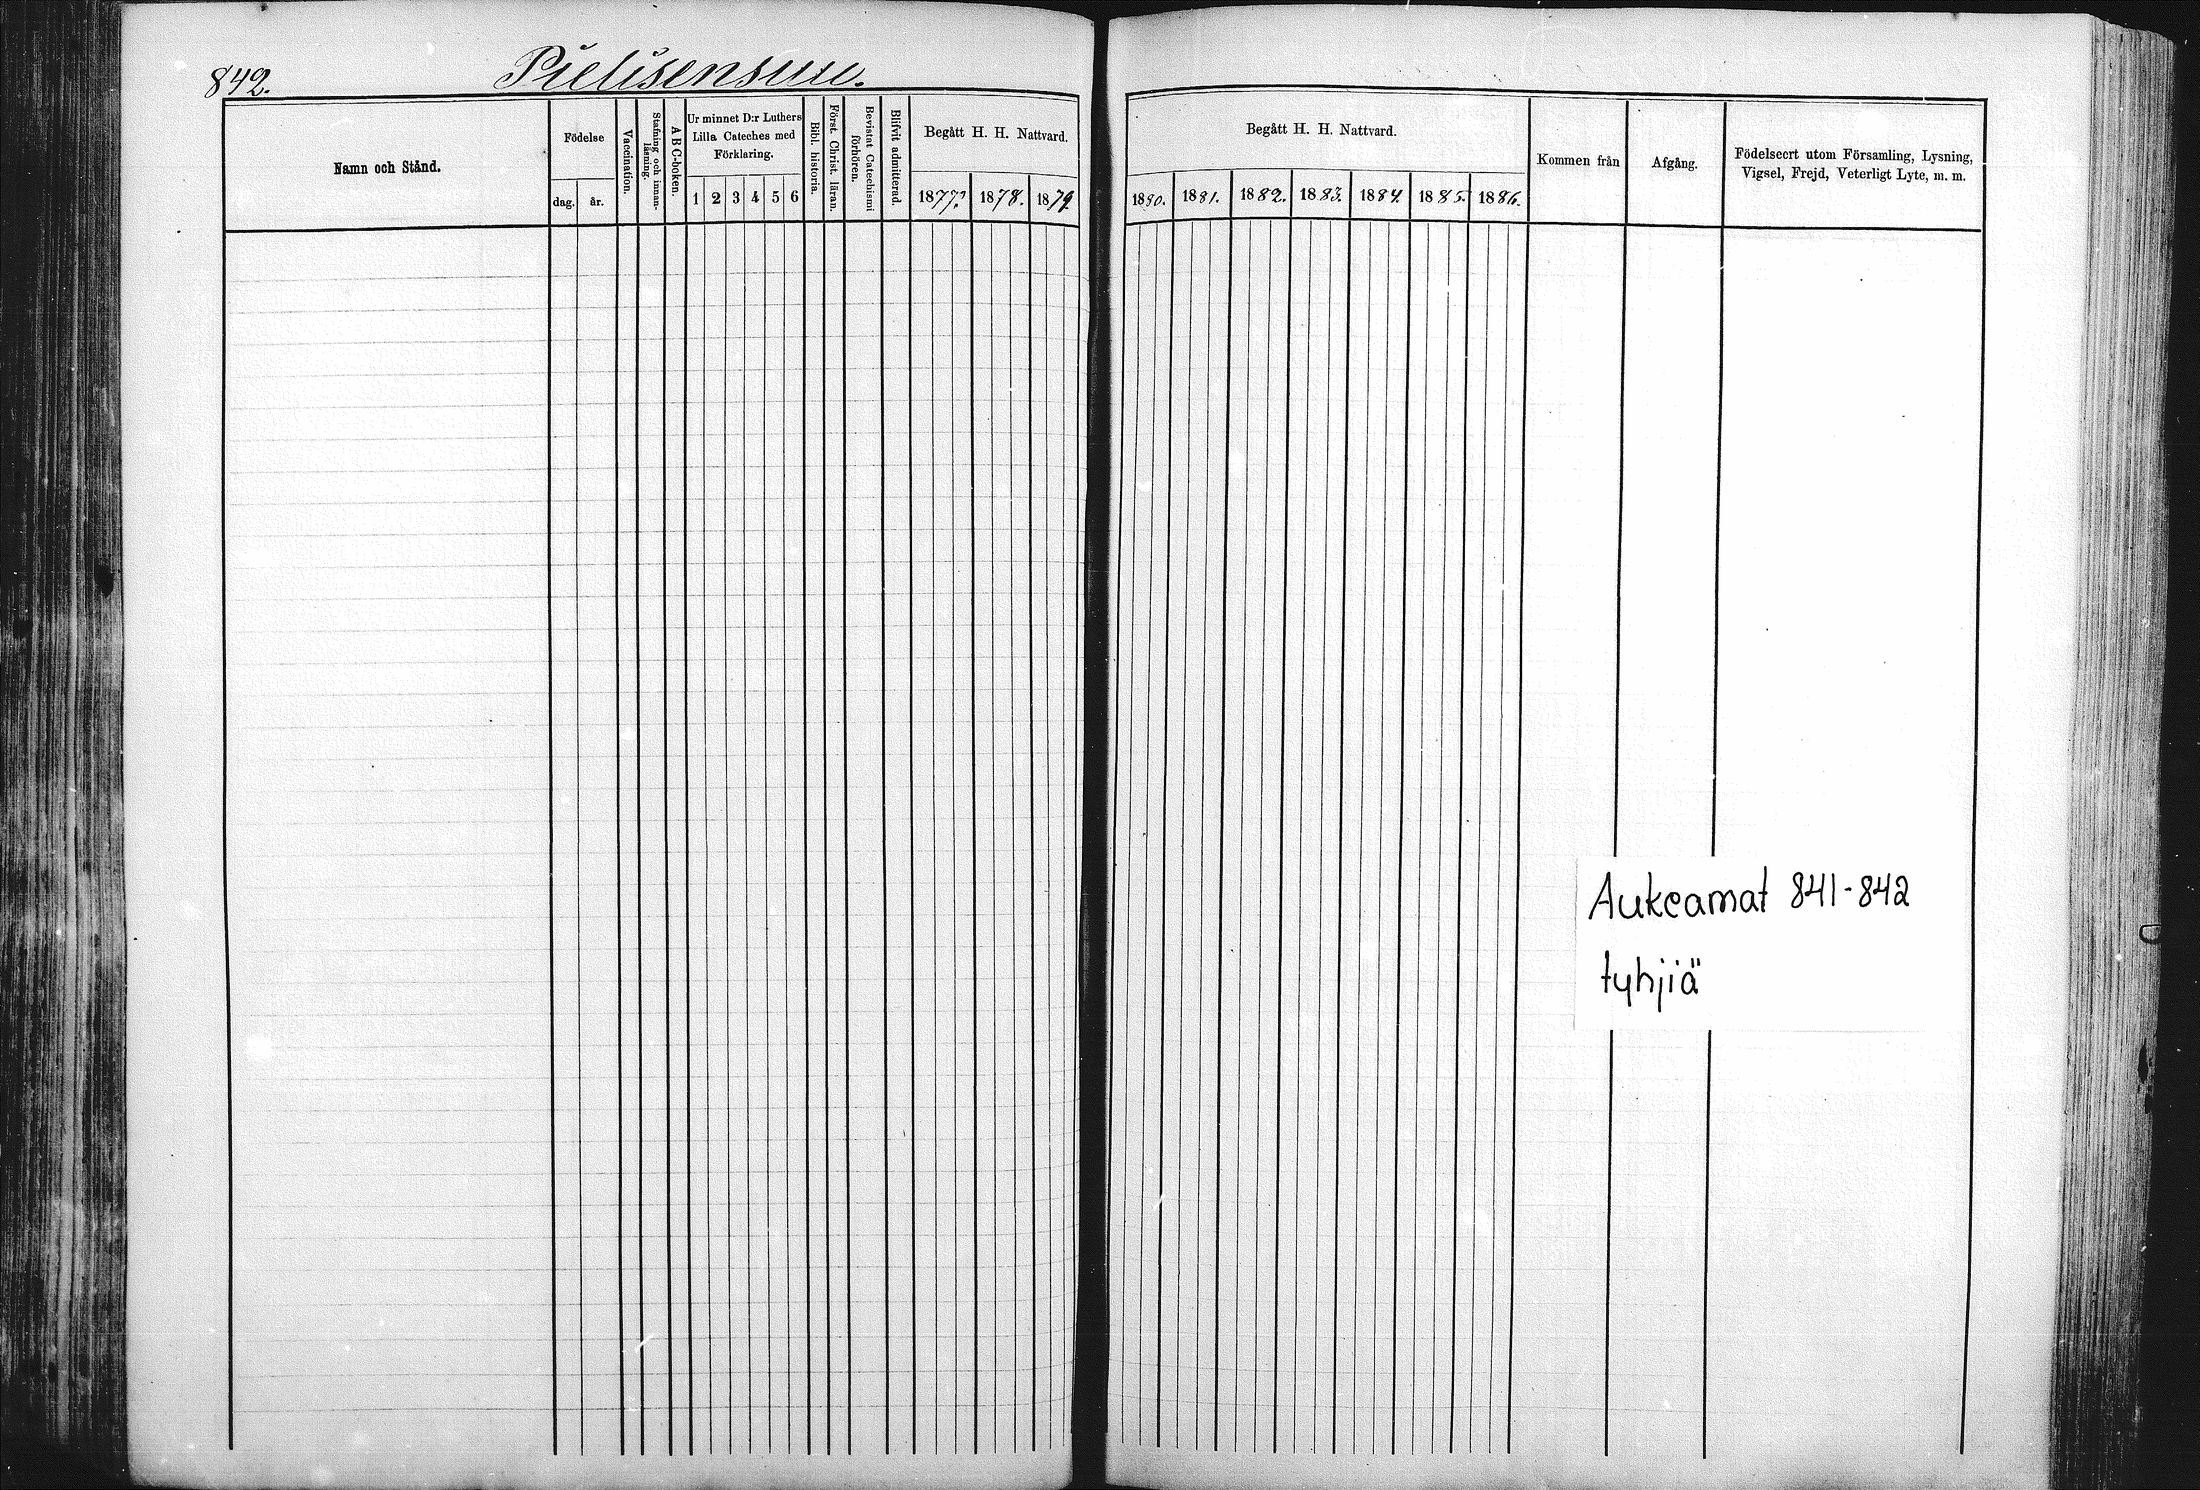 842.
Pielisensuu.
Namn och Stånd.
Födelse
dag.
år.
Vaccination.
Stafning och innan-
läsning.
ABC-boken.
Ur minnet D:r Luthers
Lilla Cateches med
Förklaring.
1 2 3 4 5 6
Bibl. historia.
Först. Christ. läran.
Bevistat Catechismi
förhören.
Blifvit admitterad.
Begått H. H. Nattvard.
1877. 1878. 1879.
Begått H. H. Nattvard.
1880. 1881. 1882. 1883. 1884. 1885. 1886.
Kommen från
Afgång.
Födelseort utom Församling, Lysning,
Vigsel, Frejd, Veterligt Lyte, m. m.
Aukeamat 841-842
tyhjiä